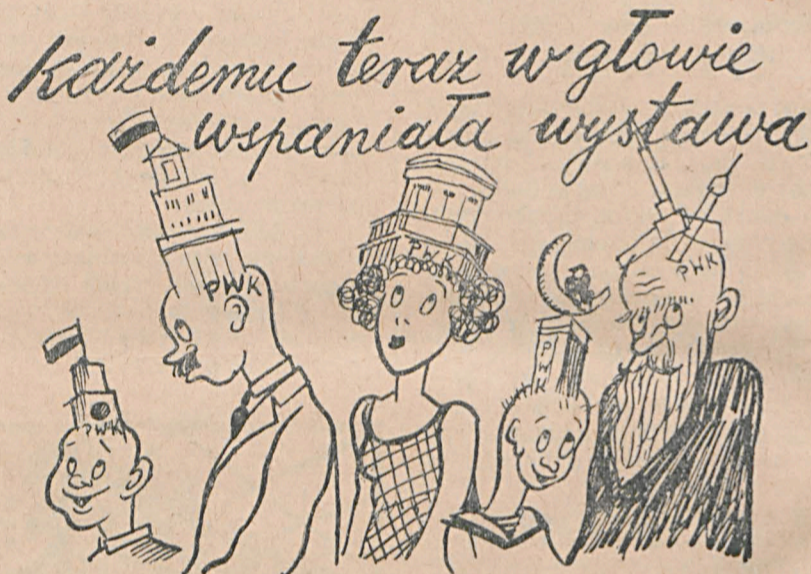 Każdemu teraz w głowie
wspaniała wystawa
PWK
PWK
PWK
PWK
PWK